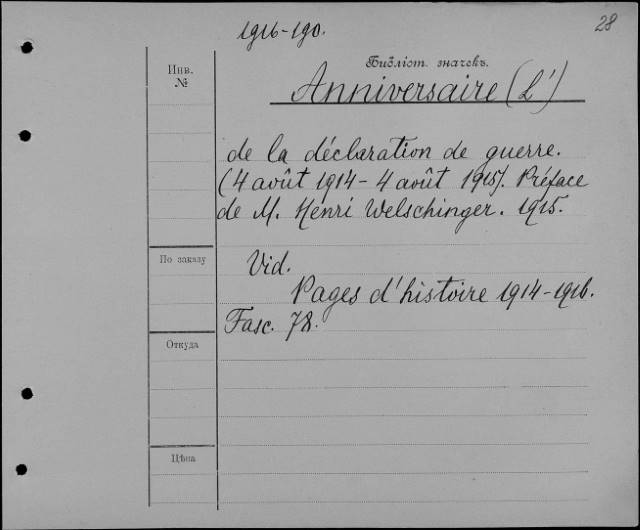 1916-190.
28
Инв.
№
Библіот. значекъ.
Anniversaire (L')
de la déclaration de guerre.
(4 août 1914 - 4 août 1915). Préface
de M. Henri Welschinger. 1915.
По заказу
Vid.
Pages d'histoire 1914-1916.
Fasc. 78.
Откуда
Цѣна